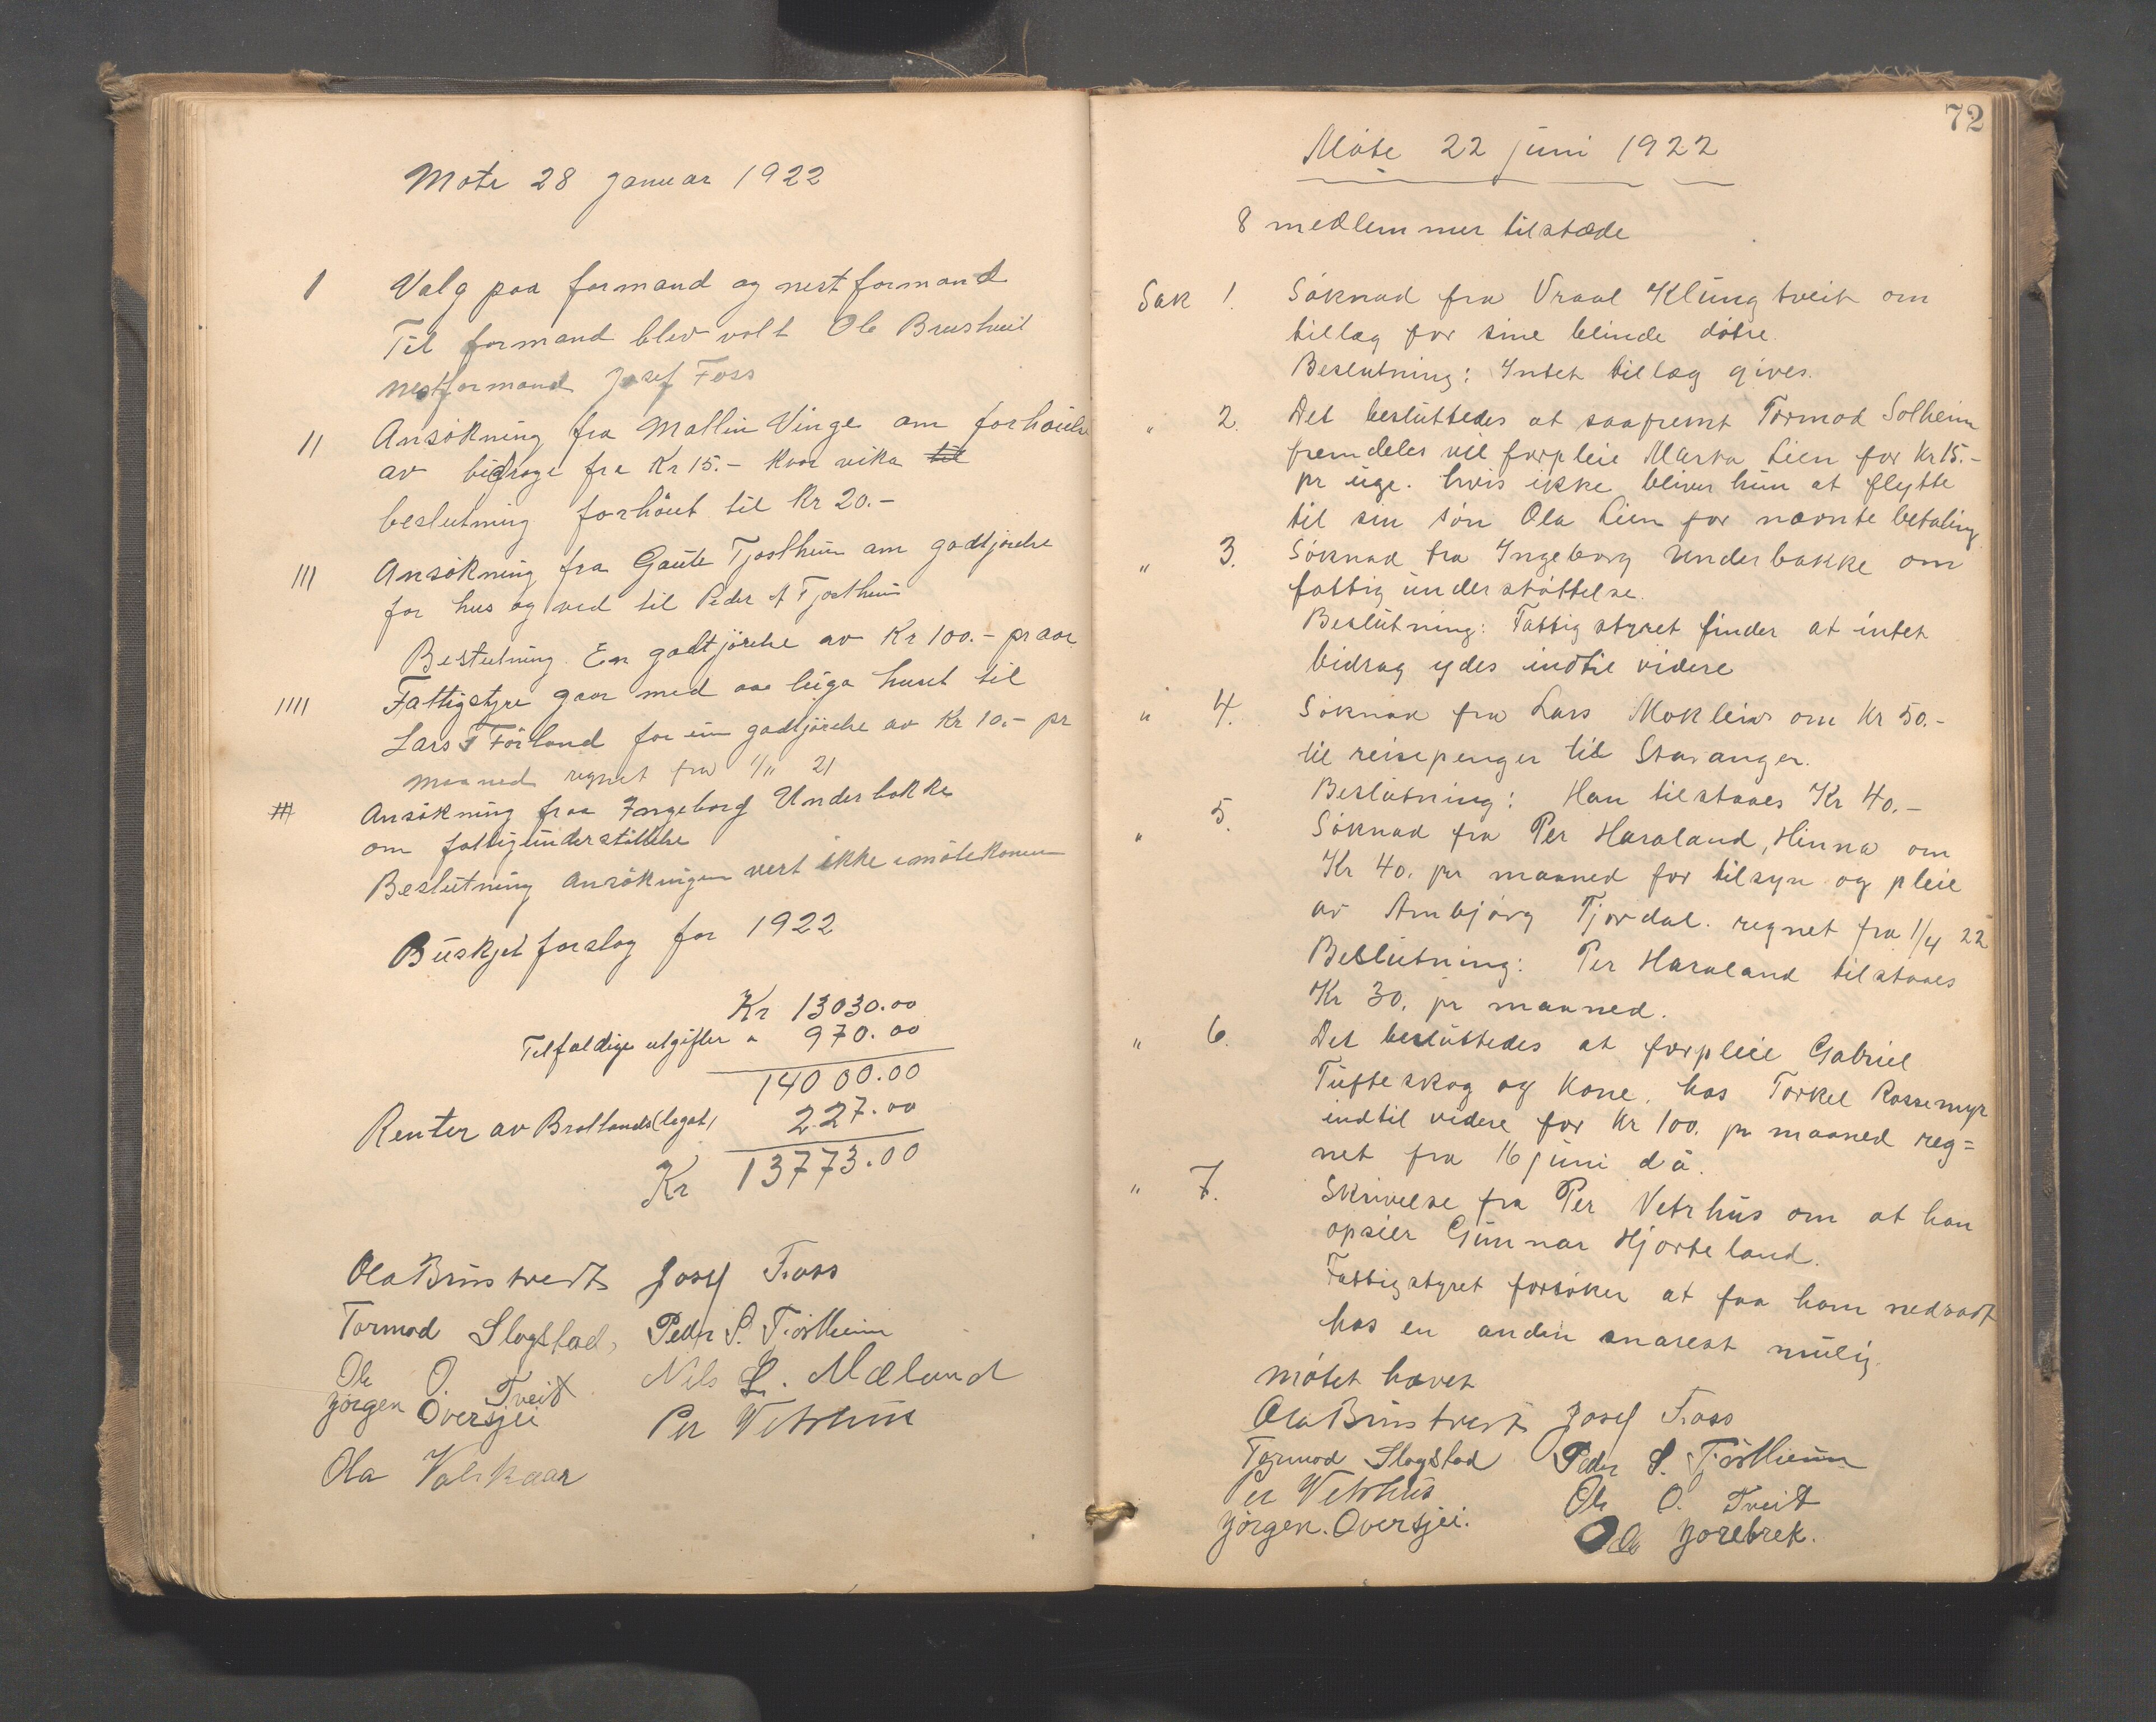 Møte 28 januar 1922
I Valg paa formand og nestformand
Til formand blev valt Ole Brustveit
nestformand Josef Foss
II Ansøkning fra Mallin Vinge om forhøielse
av bidrage fra Kr 15.- kvar vika til
beslutning forhöiet til Kr 20.-
III Ansökning fra Gaute Tjostheim om godtjørelse
for hus og ved til Peder A Tjostheim
Beslutning. En godtjörelse av Kr 100.- pr aar
IIII Fattigstyre gaar med aa leiga huset til
Lars T Förland for ein godtjörelse av Kr 10.- pr
maaned regnet fra 1/11 21
Ansökning fraa Ingeborg Underbakke
om fattigunderstöttelse
Beslutning Ansökningen vert ikke imötekomen
Buskjet forslag for 1922
Kr 13030.00
Tilfaldige utgifter " 970.00
14000.00
Renter av Bratlands(legat) 227.00
Kr 13773.00
Ola Brustveit Josef Foss
Tormod Slogstad, Peder S. Tjostheim
Ole O. Tveit Nils L. Mæland
Jørgen Oversjei Per Vetrhus
Ola Valskaar
72
Møte 22 juni 1922
8 medlemmer tilstæde
Sak 1. Søknad fra Vraal Klungtveit om
tillæg for sine blinde døtre.
Beslutning: Intet tillæg gives.
" 2. Det besluttedes at saafremt Tormod Solheim
fremdeles vil forpleie Marta Lien for Kr 15.-
pr uge. hvis ikke bliver hun at flytte
til sin søn Ola Lien for nævnte betaling
" 3. Søknad fra Ingeborg Underbakke om
fattigunderstøttelse.
Beslutning: Fattigstyret finder at intet
bidrag ydes indtil videre
" 4. Søknad fra Lars Mokleiv om Kr 50.-
til reisepenger til Stavanger.
Beslutning: Han tilstaaes Kr 40.-
" 5. Søknad fra Per Haraland, Hinna om
Kr 40. pr maaned for tilsyn og pleie
av Ambjørg Fjordal. regnet fra 1/4 22
Beslutning: Per Haraland tilstaaes
Kr 30. pr maaned.
" 6. Det besluttedes at forpleie Gabriel
Tufteskog og kone, hos Torkel Rossemyr
indtil videre for Kr 100. pr maaned reg=
net fra 16 juni d å.
" 7. Skrivelse fra Per Vetrhus om at han
opsier Gunnar Hjorteland.
Fattigstyret forsøker at faa ham nedsadt
hos en anden snarest mulig.
møtet hævet
Ola Brustveit Josef Foss
Tormod Slogstad Peder S. Tjostheim
Per Vetrhus Ole O. Tveit
Jørgen. Oversjei. Ola Jorebrek.